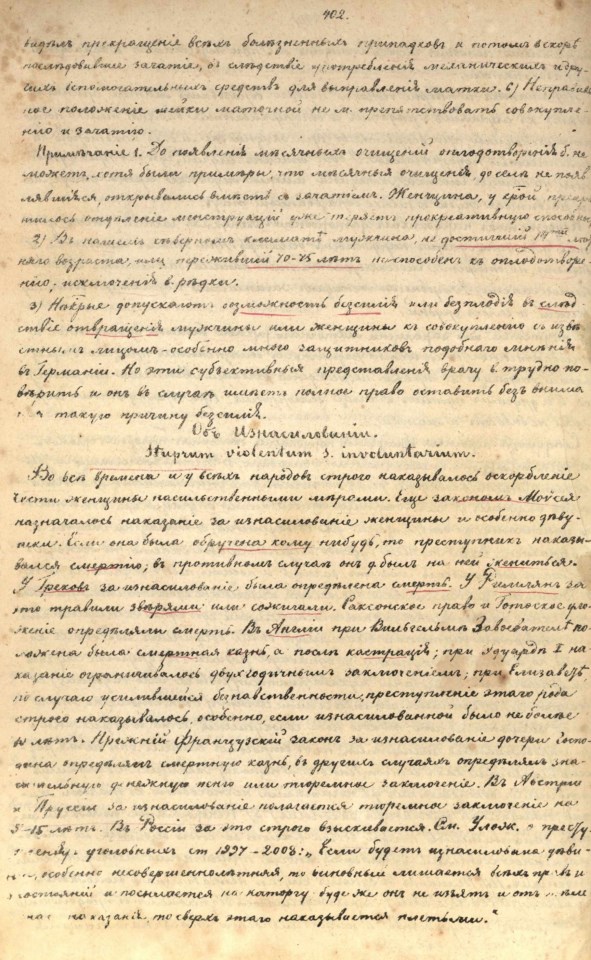 402.
видѣлъ прекращеніе всѣхъ болѣзненныхъ припадковъ и потомъ вскорѣ
послѣдовавшее зачатіе, въ слѣдствіе употребленія механическихъ и дру-
гихъ вспомогательныхъ средствъ для выправленія матки. 6) Неправиль
ное положеніе шейки маточной не м. препятствовать совокупле-
нію и зачатію.
Примѣчаніе 1. До появленія мѣсячныхъ очищеній оплодотворенія б. не
можетъ, хотя были примѣры, что мѣсячныя очищенія до селѣ не появ
лявшіяся, открывались вмѣстѣ съ зачатіемъ. Женщина, у крой прекра
тилось отдѣленіе менструацій уже теряетъ прокреативную способн.
2) Въ нашемъ сѣверномъ климатѣ мужчина, не достигшій лѣт
няго возраста, или пережившій 70-75 лѣтъ неспособенъ къ оплодотворе-
нію; исключенія в. рѣдки.
3) Нѣкрые допускаютъ возможность безсилія или безплодія въ слѣд
ствіе отвращенія мужчины или женщины къ совокупленію съ извѣ
стнымъ лицомъ - особенно много защитниковъ подобнаго мнѣнія
въ Германіи. Но эти субъективныя представленія врачу в. трудно по-
вѣрить и онъ въ случаѣ имѣетъ полное право оставить безъ внима
такую причину безсилія.
Объ Изнасилованіи.
Stuprum violentum s. involuntarium.
Во всѣ времена и у всѣхъ народовъ строго наказывалось оскорбленіе
чести женщины насильственными мѣрами. Еще закономъ Моѵсея
назначалось наказаніе за изнасилованіе женщины и особенно дѣву-
шки. Если она была обручена кому нибудь, то преступникъ наказы-
вался смертію; въ противномъ случаѣ онъ д. былъ на ней жениться.
У Грековъ за изнасилованіе была опредѣлена смерть. У Римлянъ за
это травили звѣрями или сожигали. Саксонское право и Готское уло-
женіе опредѣляли смерть. Въ Англіи при Вильгельмѣ Завоевателѣ по-
ложена была смертная казнь, а послѣ кастрація; при Эдуардѣ I на-
казаніе ограничивалось двухгодичнымъ заключеніемъ; при Елизаветѣ
по случаю усилившейся безнавственности, преступленіе этаго рода
строго наказывалось, особенно, если изнасилованной было не болѣе
10 лѣтъ. Прежній Французскій законъ за изнасилованіе дочери Госпо-
дина опредѣлялъ смертную казнь, въ другихъ случаяхъ опредѣлялъ зна-
чительную денежную пеню или тюремное заключеніе. Въ Австріи
и Пруссіи за изнасилованіе полагается тюремное заключеніе на
5-15 лѣтъ. Въ Россіи за это строго взыскивается. См. Улож. о престу
уголовныхъ ст 1997-2003: „Если будетъ изнасилована дѣви-
особенно несовершеннолѣтняя, то виновный лишается всѣхъ правъ и
состояній и посылается на каторгу буде же онъ не изъятъ и отъ
наказанія, то сверхъ этаго наказывается плетьми."